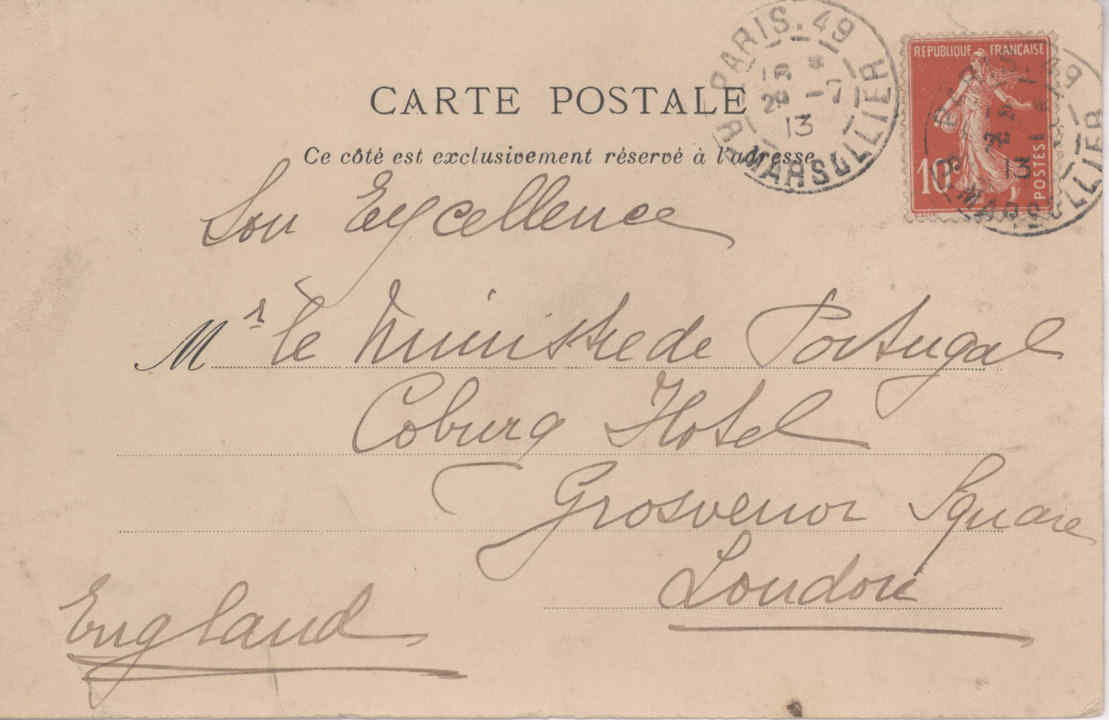 CARTE POSTALE
Ce côté est exclusivement réservé à l'adresse
PARIS.49
R. MARSOLLIER
29 -7
13
REPUBLIQUE FRANÇAISE
10c
POSTES
13
Son Excellence
Mr le Ministre de Portugal
Coburg Hotel
Grosvenor Square
London
England